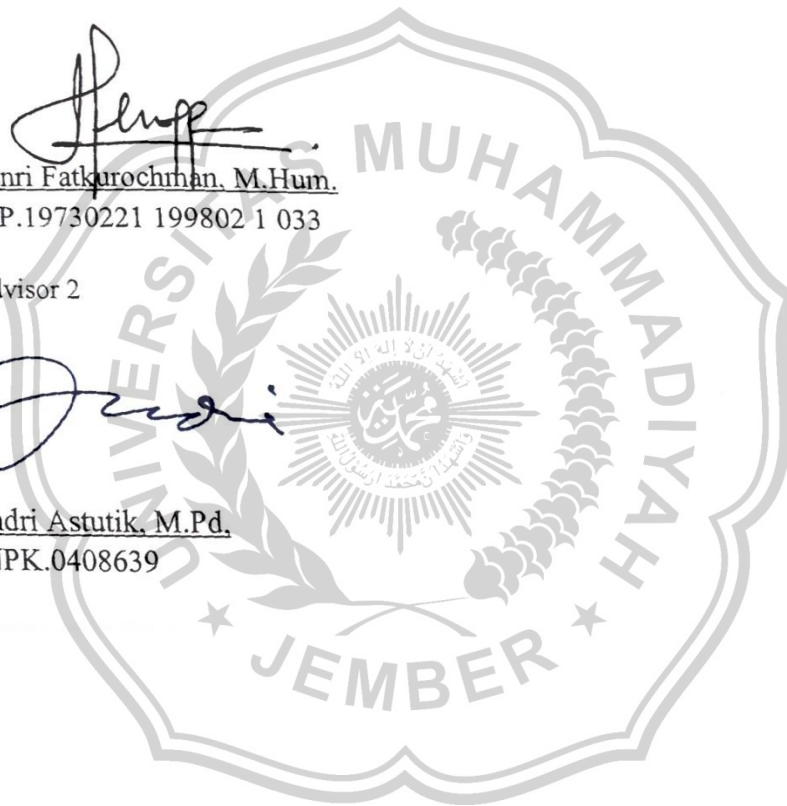 nri Fatkurochman, M.Hum.
P.19730221 199802 1 033
dvisor 2
ndri Astutik, M.Pd,
IPK.0408639
UNIVERSITAS MUHAMMADIYAH
JEMBER